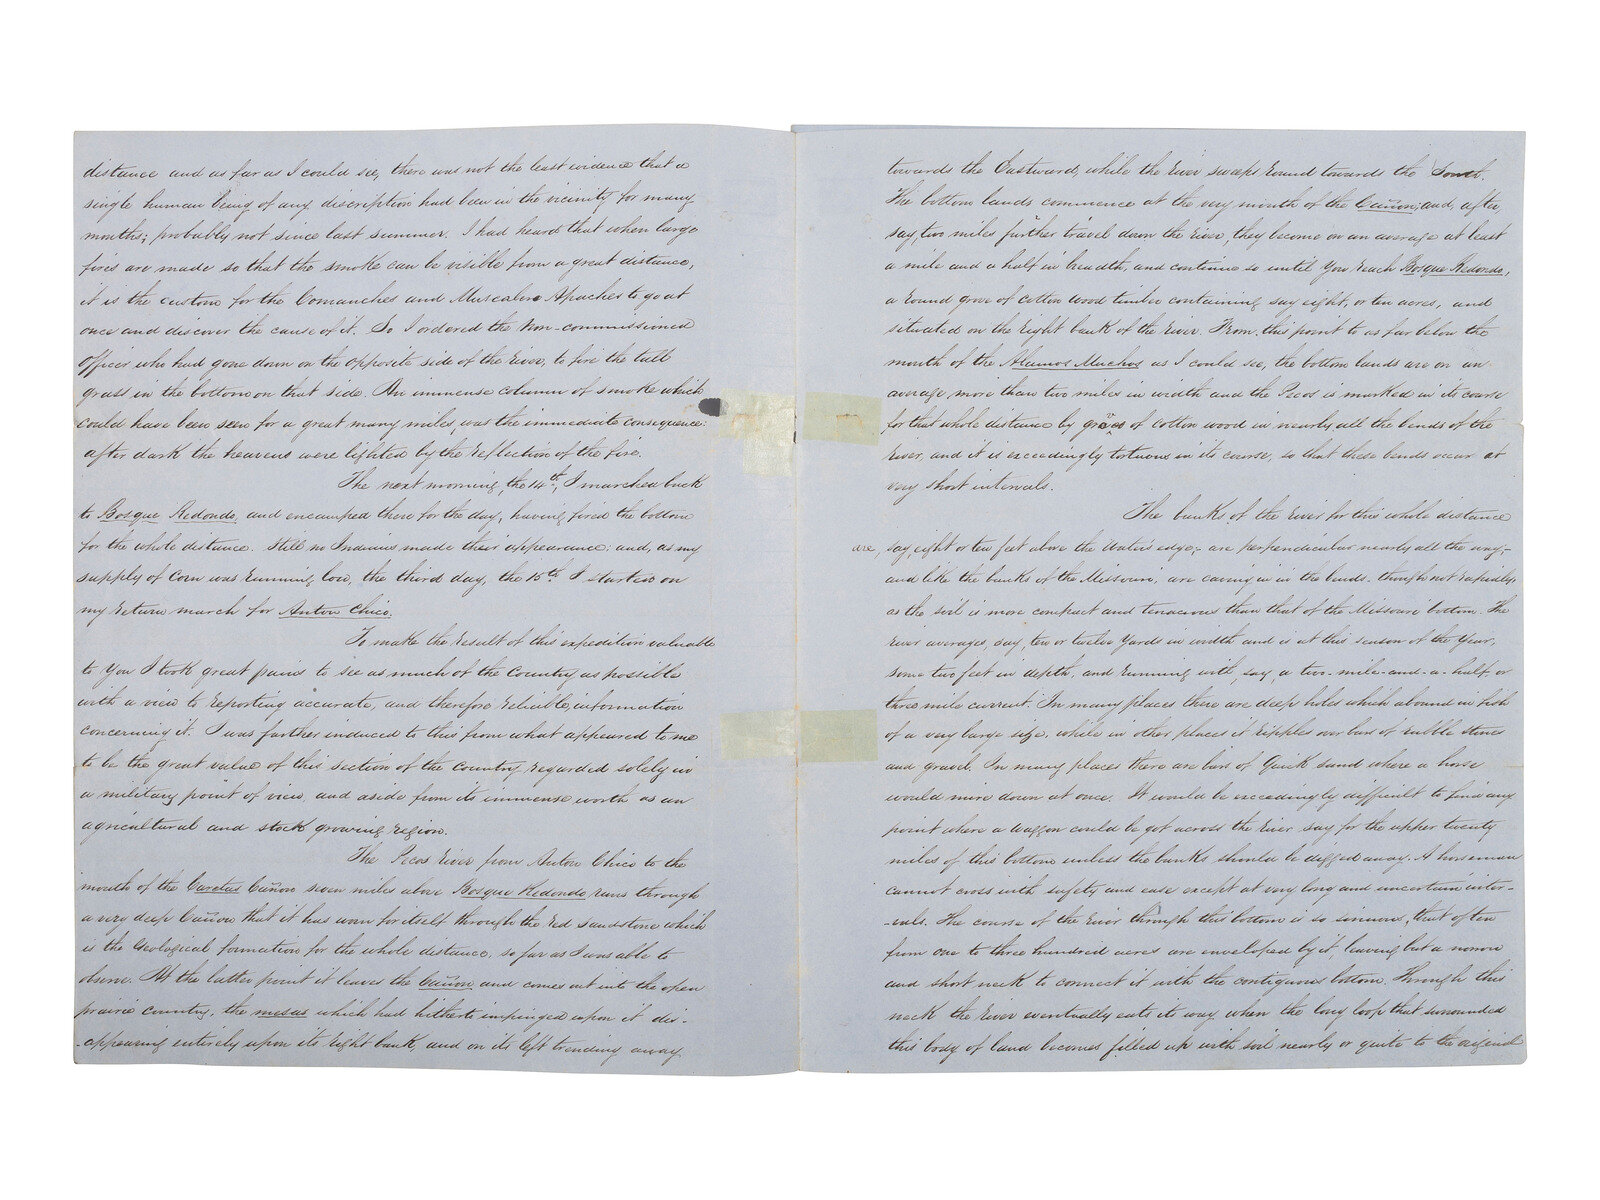 distance and as far as I could see, there was not the least evidence that a
single human being of any discription had been in the vicinity for many
months; probably not since last summer. I had heard that when large
fires are made so that the smoke can be visible from a great distance,
it is the custom for the Comanches and Muscalero Apaches to go at
once and discover the cause of it. So I ordered the Non-commissioned
officer who had gone down on the opposite side of the river, to fire the tall
grass in the bottom on that side. An immense column of smoke which
could have been seen for a great many miles, was the immediate consequence:
after dark the heavens were lighted by the reflection of the fire.
The next morning, the 14th, I marched back
to Bosque Redondo, and encamped there for the day, having fired the bottom
for the whole distance. Still no Indians made their appearance: and, as my
supply of Corn was running low, the third day, the 15th I started on
my return march for Anton Chico.
To make the result of this expedition valuable
to you I took great pains to see as much of the Country as possible
with a view to reporting accurate, and therefore reliable, information
concerning it. I was further induced to this from what appeared to me
to be the great value of this section of the Country regarded solely in
a military point of view, and aside from its immense worth as an
agricultural and stock growing region.
The Pecos river from Anton Chico to the
mouth of the Caretas Cañon seven miles above Bosque Redondo runs through
a very deep Cañon that it has worn for itself through the red sandstone which
is the Geological formation for the whole distance, so far as I was able to
observe. At the latter point it leaves the Cañon and comes out into the open
prairie country, the mesas which had hitherto impinged upon it dis-
-appearing entirely upon its right bank, and on its left trending away
towards the Eastward, while the river sweeps round towards the South.
The bottom lands commence at the very mouth of the Cañon; and, after,
say, two miles further travel down the river, they become on an average at least
a mile and a half in breadth, and continue so until you reach Bosque Redondo,
a round grove of cotton wood timber containing, say eight, or ten acres, and
situated on the right bank of the river. From this point to as far below the
mouth of the Alamos Muchos as I could see, the bottom lands are on an
average, more than two miles in width and the Pecos is marked in its course
for that whole distance by groves of cotton wood in nearly all the bends of the
river, and it is exceedingly tortuous in its course, so that these bends occur at
very short intervals.
The banks of the river for this whole distance
are, say, eight or ten feet above the water's edge,- are perpendicular nearly all the way;-
and like the banks of the Missouri, are caving in in the bends, though not rapidly
as the soil is more compact and tenacious than that of the Missouri bottom. The
river averages, say, ten or twelve yards in width and is at this season of the year,
some two feet in depth, and running with, say, a two-mile-and-a-half, or
three mile current. In many places there are deep holes which abound in fish
of a very large size, while in other places it ripples over bars of rubble stones
and gravel. In many places there are bars of Quick sand where a horse
would mire down at once. It would be exceedingly difficult to find any
point where a waggon could be got across the river say for the upper twenty
miles of this bottom unless the banks should be digged away. A horseman
cannot cross with safety and ease except at very long and uncertain inter-
-vals. The course of the river through this bottom is so sinuous, that often
from one to three hundred acres are enveloped by it, leaving but a narrow
and short neck to connect it with the contiguous bottom. Through this
neck the river eventually eats its way when the long loop that surrounded
this body of land becomes filled up with soil nearly or quite to the original